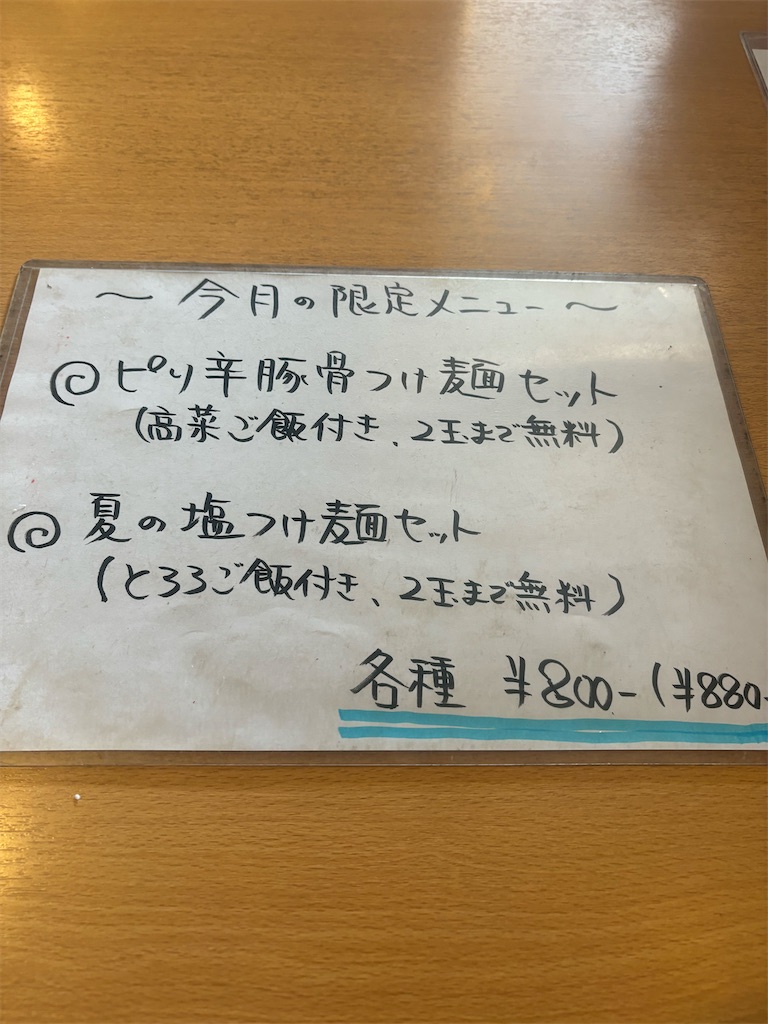 ～ 今月の限定メニュー ～
ピリ辛豚骨つけ麺セット
(高菜ご飯付き、2玉まで無料)
夏の塩つけ麺セット
(とろろご飯付き、2玉まで無料)
各種 ¥800-(¥880-